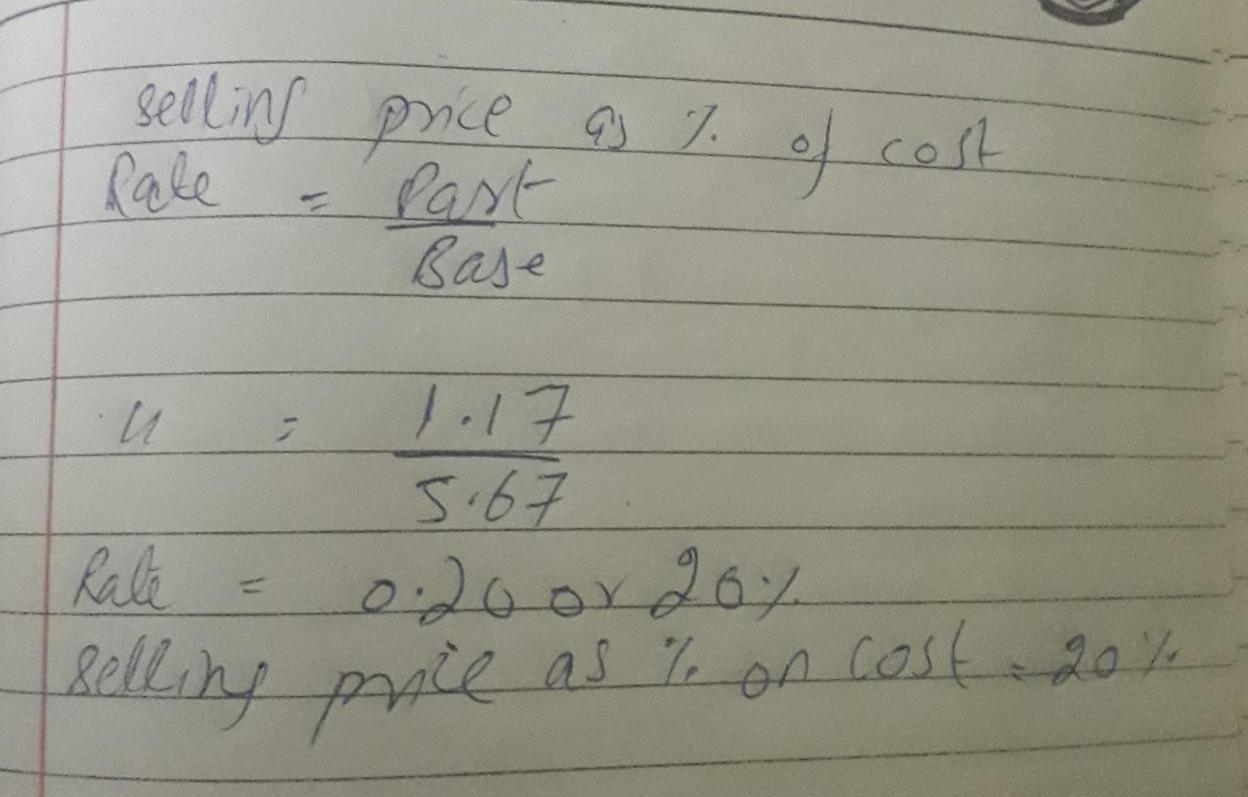 selling price as % of cost
Rate = Part
Base
u = 1.17
5.67
Rate = 0.20 or 20%
selling price as % on cost = 20%